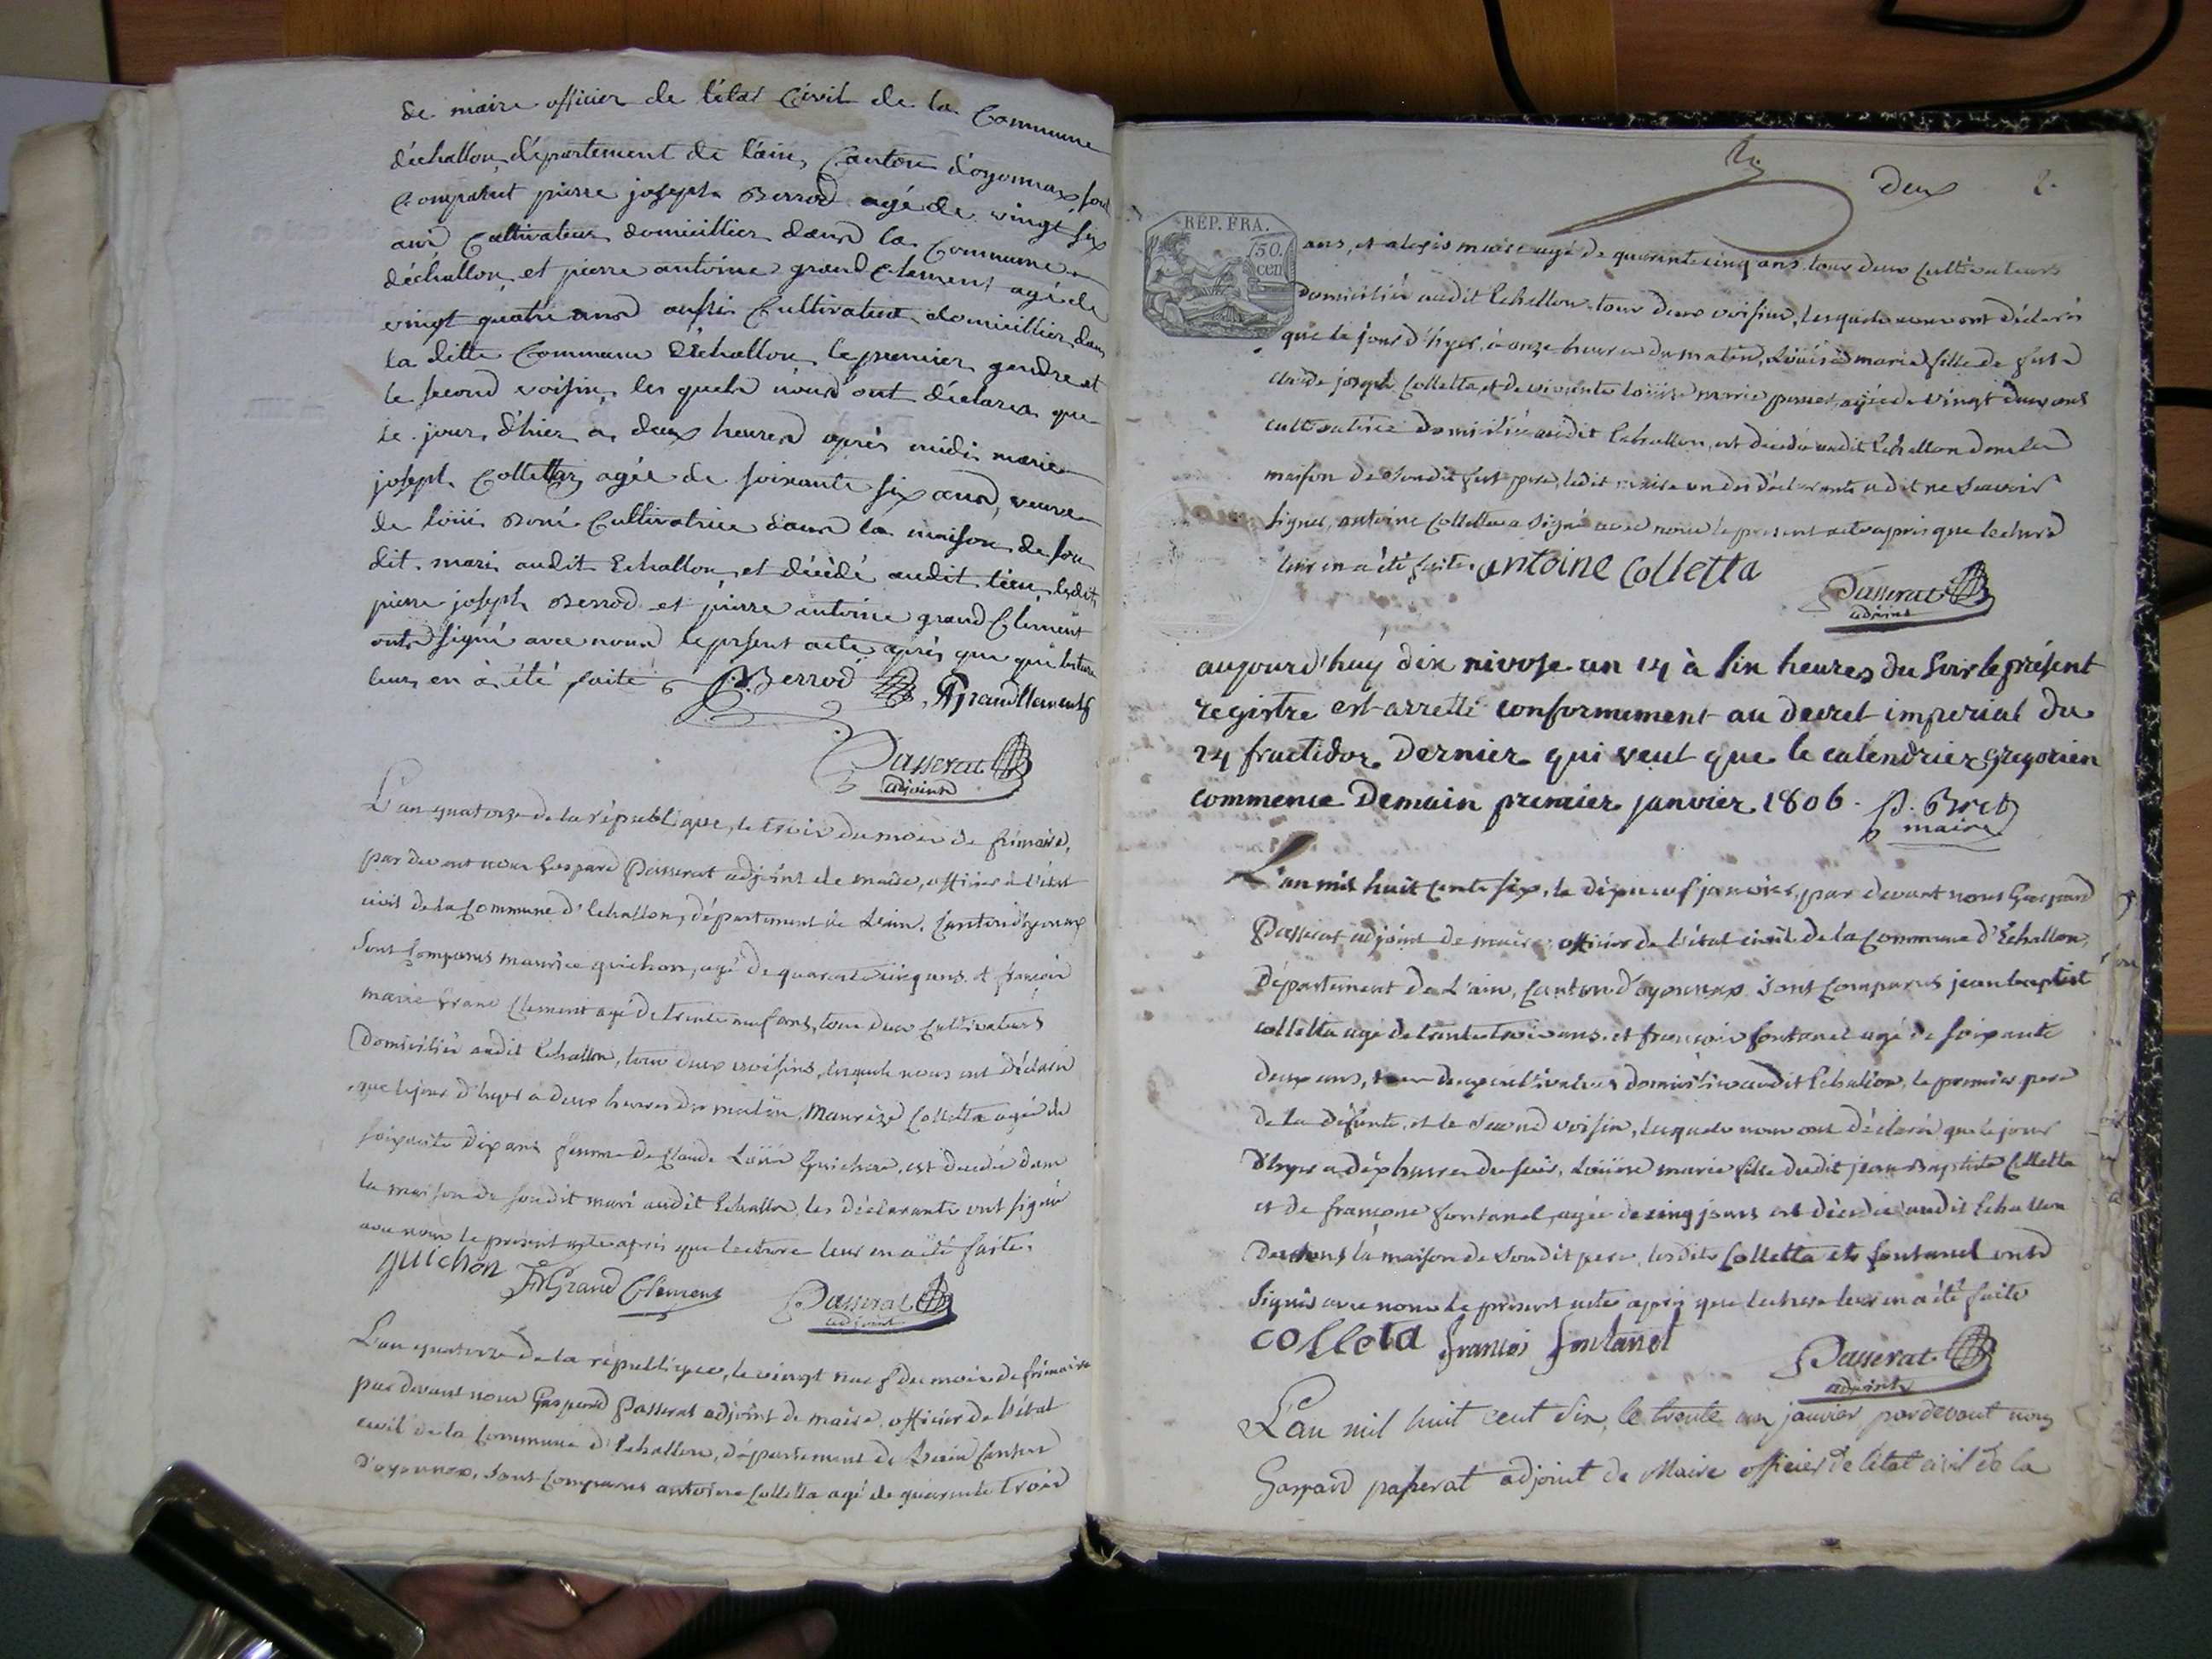 de maire officier de l'état Civil de la Commune
d'échallon, département de l'ain, Canton d'oyonnax, sont
Comparut pierre joseph Berrod agé de vingt six
ans Cultivateur domicillier dans la Commune
d'échallon, et pierre antoine grand Clement agé de
vingt quatre ans aussi Cultivateur domicillier dans
la ditte Commune d'échallon, le premier gendre et
le second voisin, les quels nous ont déclares que
le jour d'hier a deux heures après midi marie
joseph Collettaz agée de soixante six ans, veuve
de loüis Cultivatrice dans la maison de son
dit mari audit Echallon, et décédé audit lieu, lesdits
pierre joseph Berrod et pierre antoine grand Clement
onts signé avec nous le present acte après que que lecture
leurs en à été faite J. Berrod AGrandClement
Passerat
adjoint
L'an quatorze de la république, le trois du mois de frimaire,
par devant nous Gaspard Passerat adjoint de maire, officier de l'état
civil de la Commune d'Echallon, département de L'ain, Canton d'oyonnax
Sont Comparus maurice guichon, agé de quarante cinq ans et françois
marie Grand Clement agé de trente neuf ans, tous deux Cultivateurs
Domiciliés audit Echallon, tous deux voisins, lesquels nous ont déclaré
que le jour d'hyer a deux heures du matin, Maurize Colletta agée de
soixante dix ans femme de Claude Loüis Guichon, est decedée dans
la maison de son dit mari audit Echallon, les déclarants ont signé
avec nous le present acte après que lecture leur en a été faite.
guichon FMGrand Clement Passerat
adjoint
L'an quatorze de la république, le vingt neuf du mois de frimaire
par devant nous Gaspard Passerat adjoint de maire, officier de l'état
civil de la Commune d'Echallon, département de L'ain Canton
d'oyonnax, Sont Comparus antoine Colletta agé de quarante trois
deux 2.
REP. FRA.
50.
cen
ans, et alexis maire agé de quarante cinq ans tous deux Cultivateurs
Domiciliés audit Echallon, tous deux voisins, lesquels nous ont déclarés
que le jour d'hyer, à onze heures du matin, Loüise marie fille de fut
claude joseph Colletta, et de vivante loüise marie agée de vingt deux ans
cultivatrice Domiciliée audit Echallon, est décédée audit Echallon dans la
maison de son dit fut pere, ledit maire un des déclarants a dit ne Scavoir
Signer, antoine Colletta a Signé avec nous le present acte après que lecture
leur en a été faite. antoine Colletta
Passerat
adjoint
aujourd'huy dix nivose an 14 à Six heures du Soir le présent
registre est arretté conformement au decret imperial du
24 fructidor Dernier qui veut que le calendrier Gregorien
commence Demain premier janvier 1806. P. Bret
maire
L'an mil huit cents six, le dixneuf janvier, par devant nous Gaspard
Passerat adjoint de maire officier de l'état civil de la Commune d'Echallon,
Département de L'ain, Canton d'oyonnax Sont Comparus jean baptist
colletta agé de trente trois ans, et françois fontanel agé de Soixante
deux ans, tous deux cultivateurs domiciliés audit Echallon, le premier pere
de la défunte, et le Second voisin, lesquels nous ont déclaré que le jour
d'hyer a dix heures du soir, Loüise marie fille dudit jean Baptiste Colletta
et de françoise fontanel, agée de cinq jours est décédée audit Echallon
dans la maison de Son dit pere, lesdits Colletta et fontanel onts
Signés avec nous le présent acte après que lecture leur en a été faite
colleta francois fontanel
Passerat
adjoint
L'an mil huit cent Six, le trente un janvier pardevant nous
Gaspard passerat adjoint de Maire officier de l'état civil de la